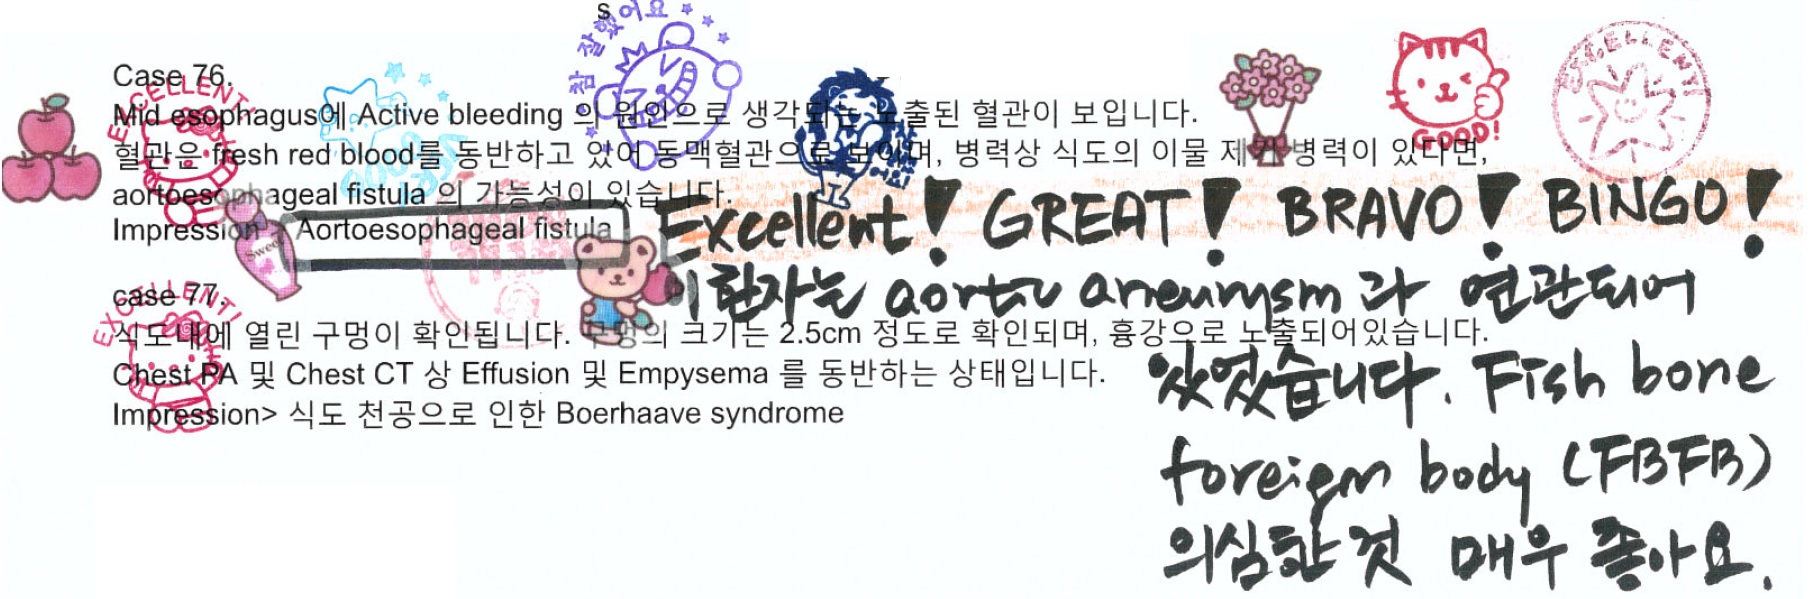 s
참 잘했어요
Case 76.
EXCELLENT!
Mid esophagus에 Active bleeding 의 원인으로 생각되는 노출된 혈관이 보입니다.
EXCELLENT
GOOD!
혈관은 fresh red blood를 동반하고 있어 동맥혈관으로 보이며, 병력상 식도의 이물 제거 병력이 있다면,
GOOD
aortoesophageal fistula 의 가능성이 있습니다.
Impression> Aortoesophageal fistula
Sweet
Excellent! GREAT! BRAVO! BINGO!
이 환자는 aortic aneurysm 과 연관되어
있었습니다. Fish bone
foreign body (FBFB)
의심한 것 매우 좋아요.
case 77.
EXCELLENT!
식도내에 열린 구멍이 확인됩니다. 구멍의 크기는 2.5cm 정도로 확인되며, 흉강으로 노출되어있습니다.
Chest PA 및 Chest CT 상 Effusion 및 Empysema 를 동반하는 상태입니다.
Impression> 식도 천공으로 인한 Boerhaave syndrome